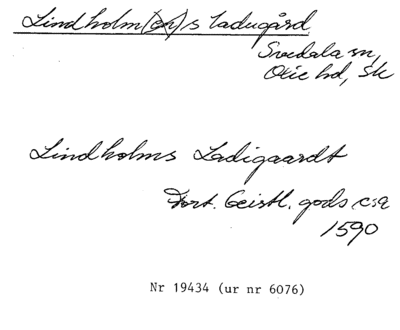 Lindholm(en)s Ladugård
Svedala sn,
Oxie hd, Sk
Lindholms Ladigaardt
Fort. Geistl. gods c:a
1590
Nr 19434 (ur nr 6076)